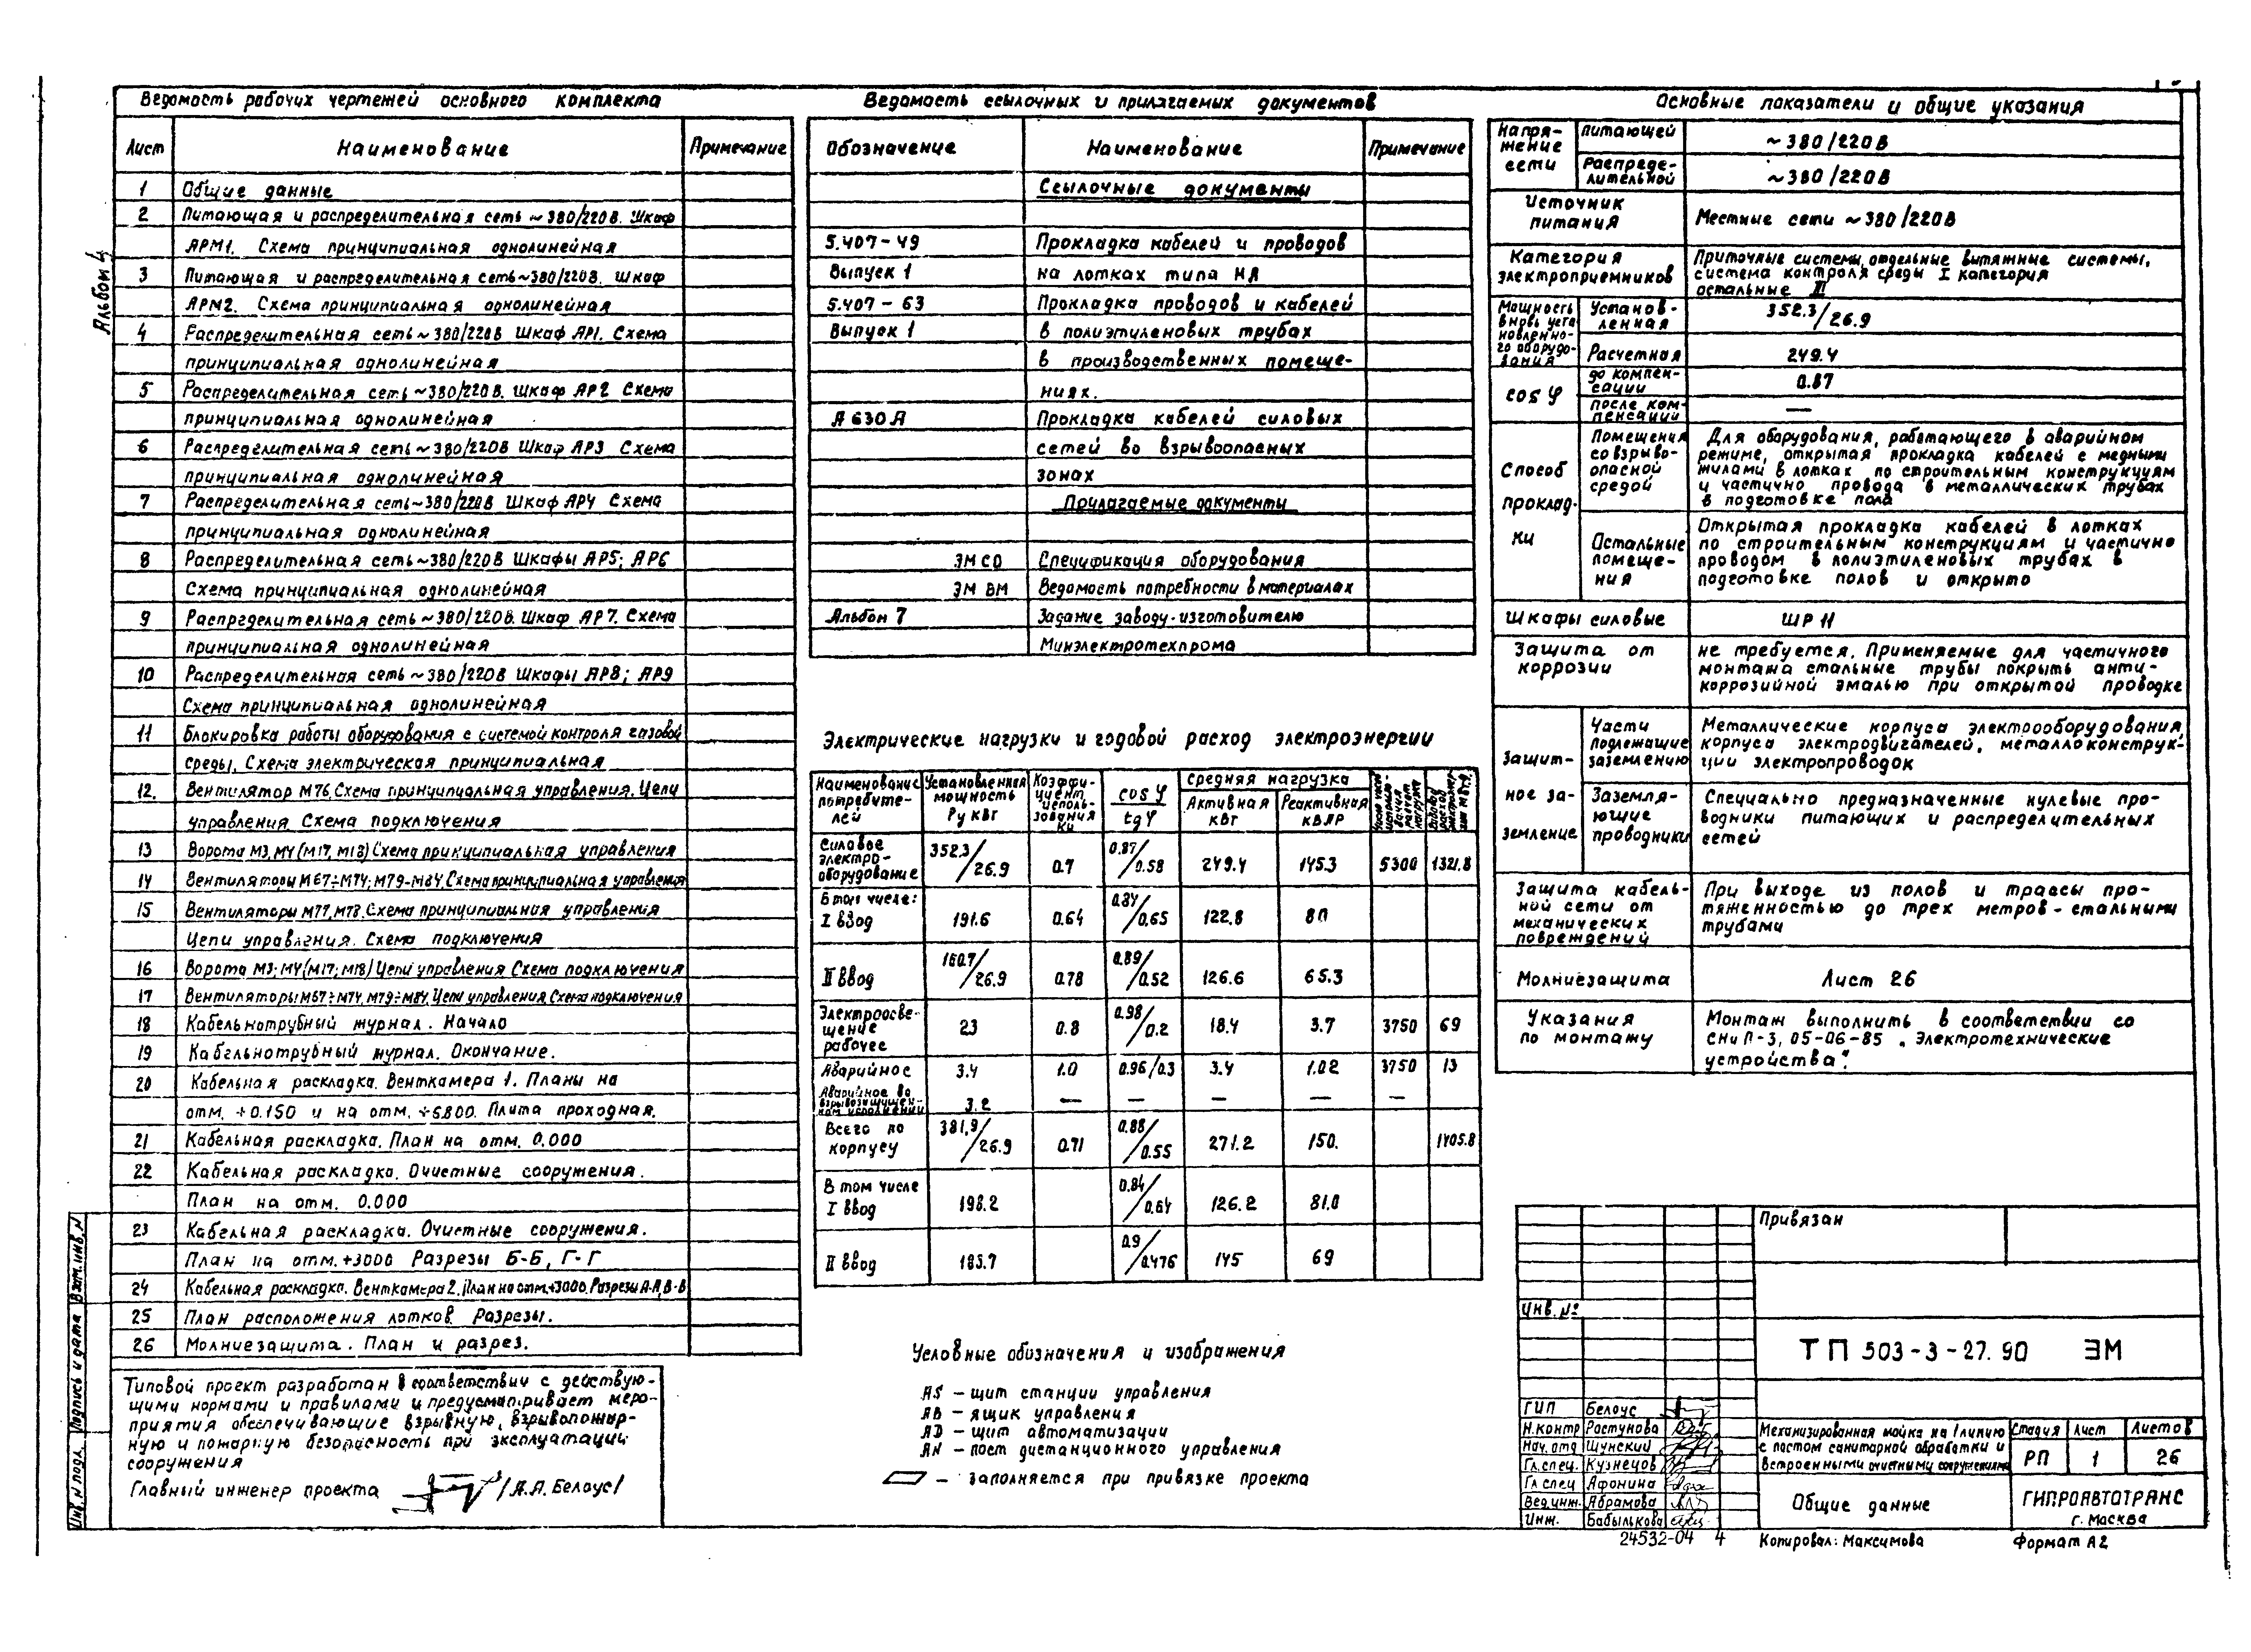 Альбом 4
Ведомость рабочих чертежей основного комплекта
Лист Наименование Примечание
1 Общие данные
2 Питающая и распределительная сеть ~380/220В. Шкаф
АРМ1. Схема принципиальная однолинейная
3 Питающая и распределительная сеть~380/220В. Шкаф
АРМ2. Схема принципиальная однолинейная
4 Распределительная сеть ~380/220В Шкаф АР1. Схема
принципиальная однолинейная
5 Распределительная сеть ~380/220В. Шкаф АР2 Схема
принципиальная однолинейная
6 Распределительная сеть ~380/220В Шкаф АР3 Схема
принципиальная однолинейная
7 Распределительная сеть ~380/220В Шкаф АР4 Схема
принципиальная однолинейная
8 Распределительная сеть ~380/220В Шкафы АР5; АР6
Схема принципиальная однолинейная
9 Распределительная сеть ~380/220В. Шкаф АР7. Схема
принципиальная однолинейная
10 Распределительная сеть ~380/220В Шкафы АР8; АР9
Схема принципиальная однолинейная
11 Блокировка работы оборудования с системой контроля газовой
среды. Схема электрическая принципиальная
12. Вентилятор М76. Схема принципиальная управления. Цепи
управления. Схема подключения
13 Ворота М3, М4 (М17, М18) Схема принципиальная управления
14 Вентиляторы М67÷М74; М79-М84. Схема принципиальная управления
15 Вентиляторы М77, М78. Схема принципиальная управления
Цепи управления. Схема подключения
16 Ворота М3; М4 (М17; М18) Цепи управления Схема подключения
17 Вентиляторы М67÷М74, М79÷М84. Цепи управления. Схема подключения
18 Кабельнотрубный журнал. Начало
19 Кабельнотрубный журнал. Окончание.
20 Кабельная раскладка. Венткамера 1. Планы на
отм. +0.150 и на отм. +5.800. Плита проходная.
21 Кабельная раскладка. План на отм. 0.000
22 Кабельная раскладка. Очистные сооружения.
План на отм. 0.000
23 Кабельная раскладка. Очистные сооружения.
План на отм. +3000 Разрезы Б-Б, Г-Г
24 Кабельная раскладка. Венткамера 2. План на отм. +3000. Разрезы А-А, В-В
25 План расположения лотков. Разрезы.
26 Молниезащита. План и разрез.
Типовой проект разработан в соответствии с действую-
щими нормами и правилами и предусматривает меро-
приятия обеспечивающие взрывную, взрывопожар-
ную и пожарную безопасность при эксплуатации
сооружения
Главный инженер проекта /А.А. Белоус/
Инв. N подл. Подпись и дата Взам. инв. N
Ведомость ссылочных и прилагаемых документов
Обозначение Наименование Примечание
Ссылочные документы
5.407-49 Прокладка кабелей и проводов
Выпуск 1 на лотках типа НЛ
5.407-63 Прокладка проводов и кабелей
Выпуск 1 в полиэтиленовых трубах
в производственных помеще-
ниях.
А630А Прокладка кабелей силовых
сетей во взрывоопасных
зонах
Прилагаемые документы
ЭМ СО Спецификация оборудования
ЭМ ВМ Ведомость потребности в материалах
Альбом 7 Задание заводу-изготовителю
Минэлектротехпрома
Электрические нагрузки и годовой расход электроэнергии
Наименование потребите-лей Установленная мощность Ру кВт Коэффи-циент исполь-зования Ки cos φ tg φ Средняя нагрузка
Активная кВт Реактивная кВАР
Силовое электро-оборудование 352.3/26.9 0.7 0.87/0.58 249.4 145.3 5300 1321.8
В том числе:
I ввод 191.6 0.64 0.84/0.65 122.8 80
II ввод 160.7/26.9 0.78 0.89/0.52 126.6 65.3
Электроосве-щение рабочее 23 0.8 0.98/0.2 18.4 3.7 3750 69
Аварийное 3.4 1.0 0.96/0.3 3.4 1.02 3750 13
Аварийное во взрывозащищен-ном исполнении 3.2 — — — — —
Всего по корпусу 381.9/26.9 0.71 0.88/0.55 271.2 150. 1405.8
В том числе
I ввод 198.2 0.84/0.64 126.2 81.0
II ввод 183.7 0.9/0.476 145 69
Условные обозначения и изображения
AS – щит станции управления
АВ – ящик управления
АD – щит автоматизации
АN – пост дистанционного управления
– заполняется при привязке проекта
Основные показатели и общие указания
Напря-жение сети питающей ~380/220В
Распреде-лительной ~380/220В
Источник питания Местные сети ~380/220В
Категория электроприемников Приточные системы, отдельные вытяжные системы,
система контроля среды I категория
остальные III
Мощность вновь уста новленно-го оборудо-вания Установ-ленная 352.3/26.9
Расчетная 249.4
cos φ до компен-сации 0.87
после ком-пенсации —
Способ проклад-ки Помещения со взрыво-опасной средой Для оборудования, работающего в аварийном
режиме, открытая прокладка кабелей с медными
жилами в лотках по строительным конструкциям
и частично провода в металлических трубах
в подготовке пола
Остальные помеще-ния Открытая прокладка кабелей в лотках
по строительным конструкциям и частично
проводом в полиэтиленовых трубах в
подготовке полов и открыто
Шкафы силовые ШР 11
Защита от коррозии не требуется. Применяемые для частичного
монтажа стальные трубы покрыть анти-
коррозийной эмалью при открытой проводке
Защит-ное за-земление Части подлежащие заземлению Металлические корпуса электрооборудования,
корпуса электродвигателей, металлоконструк-
ции электропроводок
Заземля-ющие проводники Специально предназначенные нулевые про-
водники питающих и распределительных
сетей
Защита кабель-ной сети от механических повреждений При выходе из полов и трассы про-
тяженностью до трех метров - стальными
трубами
Молниезащита Лист 26
Указания по монтажу Монтаж выполнить в соответствии со
СНиП-3.05-06-85 „Электротехнические
устройства".
Привязан
Инв. №
ТП 503-3-27.90 ЭМ
ГИП Белоус
Н.контр Растунова
Нач. отд Шунский
Гл. спец. Кузнецов
Гл спец Афонина
Вед. инж. Абрамова
Инж. Бабылькова
Механизированная мойка на 1 линию
с постом санитарной обработки и
встроенными очистными сооружениями
Стадия Лист Листов
РП 1 26
Общие данные
ГИПРОАВТОТРАНС
г. Москва
24532-04 4 Копировал: Максимова Формат А2